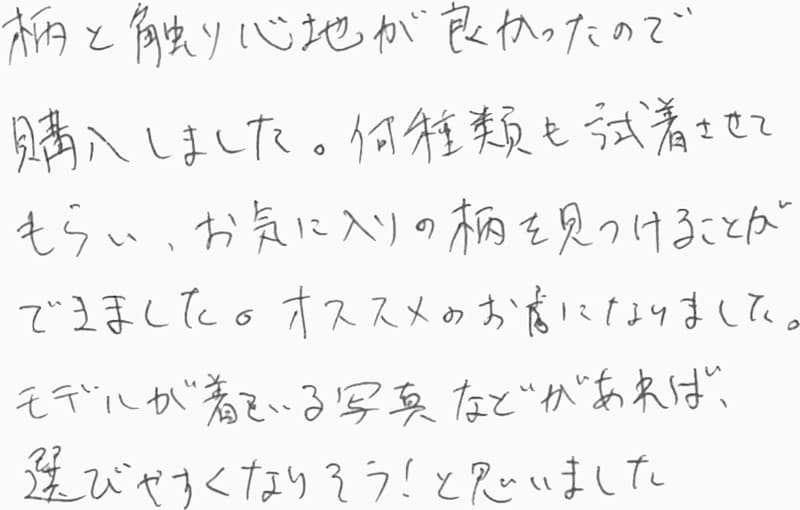 柄と触り心地が良かったので
購入しました。何種類も試着させて
もらい、お気に入りの柄を見つけることが
できました。オススメのお店になりました。
モデルが着ている写真などがあれば、
選びやすくなりそう!と思いました